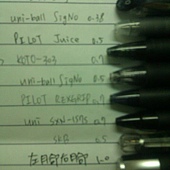 uni-ball SigNo 0.38
PILOT Juice 0.5
KGTO-303 0.7
uni-ball SigNo 0.5
PILOT REXGRIP 0.7
uni SXN-157S 0.7
SKB 0.5
1.0